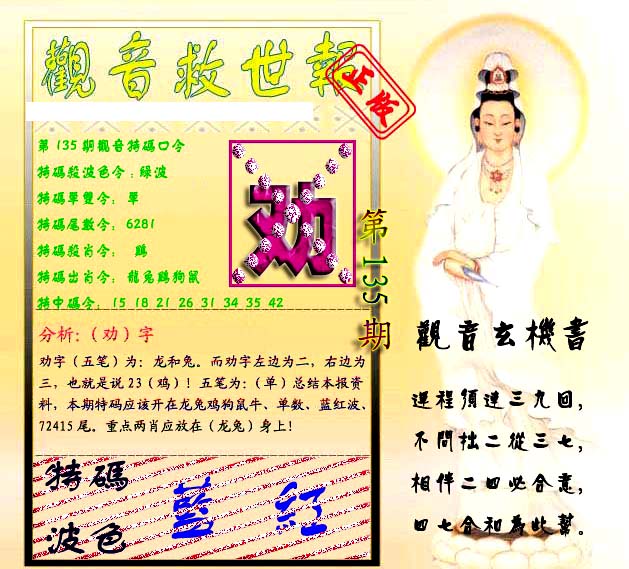 觀音救世報
正版
第135期觀音特碼口令
特碼殺波色令:綠波
特碼單雙令: 單
特碼尾數令: 6281
特碼殺肖令: 鷄
特碼出肖令: 龍兔鷄狗鼠
特中碼令: 15 18 21 26 31 34 35 42
劝
第135期
分析:(劝)字
劝字（五笔）为：龙和兔。而劝字左边为二，右边为
三，也就是说23（鸡）！五笔为：（单）总结本报资
料，本期特码应该开在龙兔鸡狗鼠牛、单数、蓝红波、
72415尾。重点两肖应放在（龙兔）身上！
特碼
波色
藍 紅
觀音玄機書
逆程須達三九回，
不問拙二從三七，
相伴二四必合意，
四七合和為此幫。